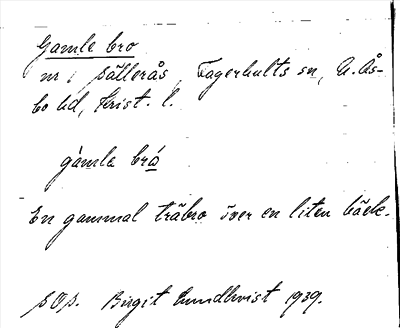 Gamle bro
nr 1 Sällerås, Fagerhults sn, N. Ås-
bo hd, Krist. l.
gamla brå
En gammal träbro över en liten bäck.
Birgit Lundkvist 1939.